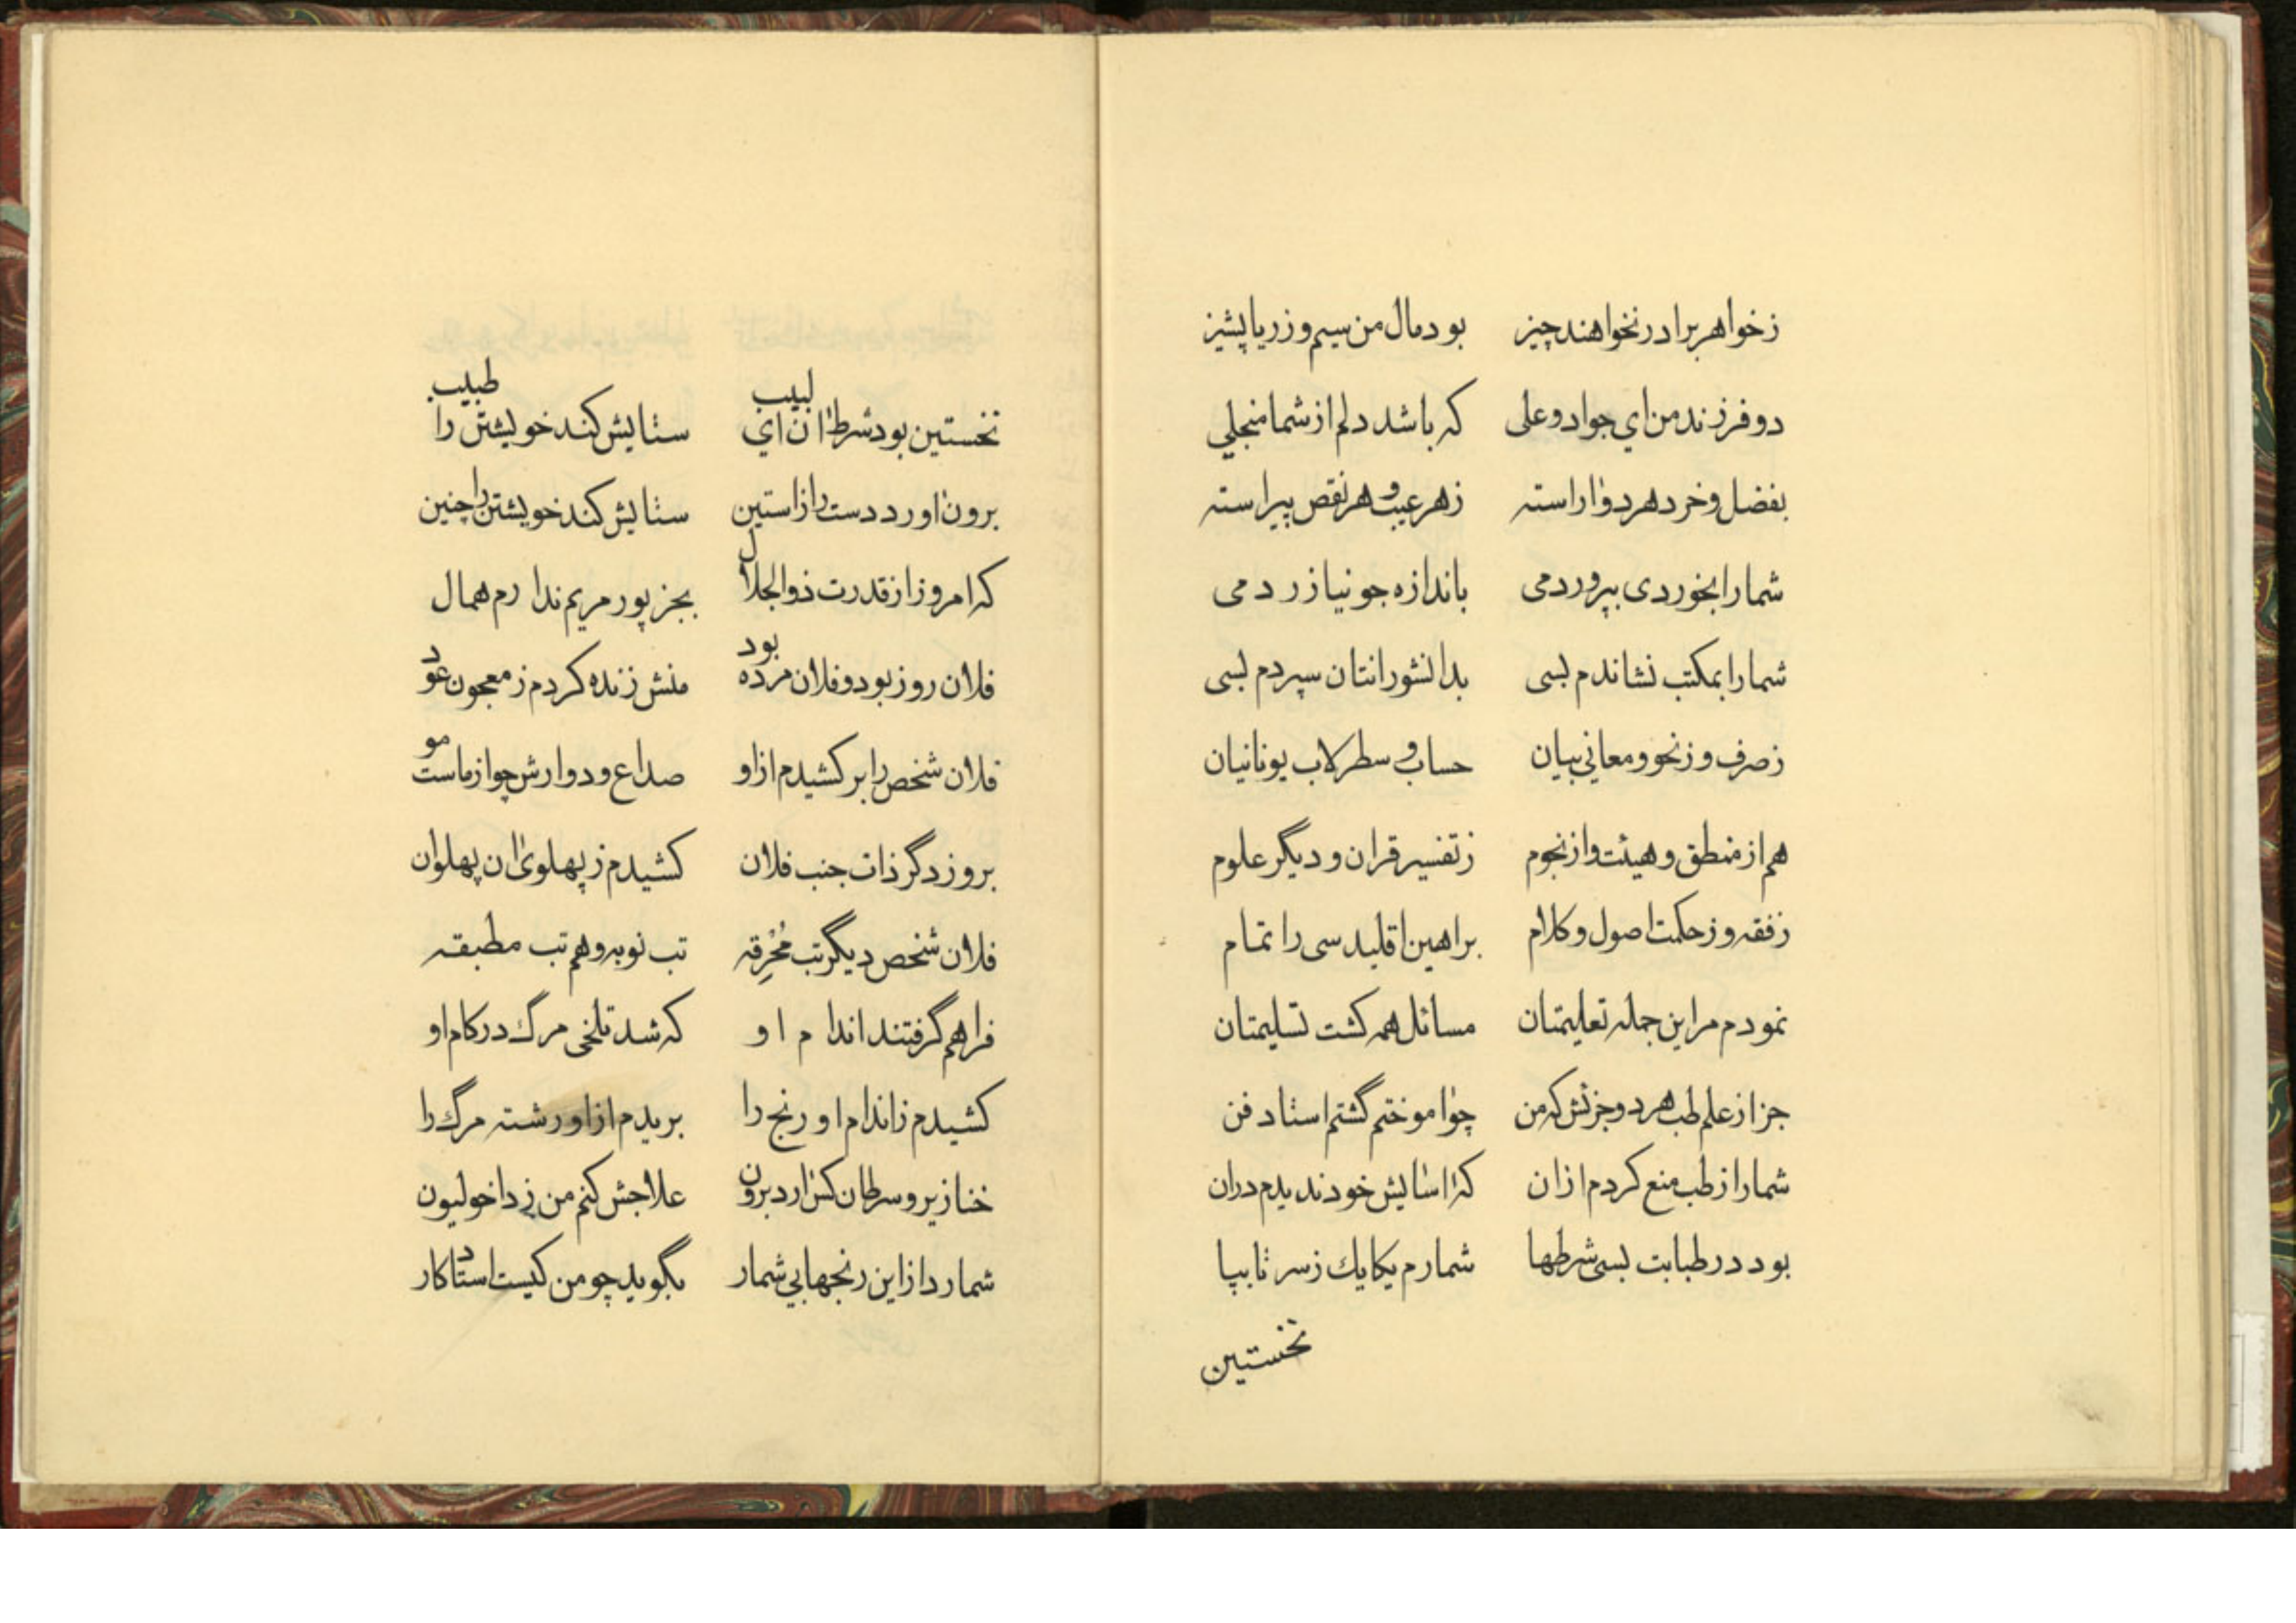 زخواهر برادر نخواهند چیز بود مال من سیم و زر یا پشیز
دو فرزند من اي جواد و علی که باشد دلم از شما منجلي
بفضل و خرد هر دو اراسته زهر عیب و هر نقص پیراسته
شما را بخوردی بپروردمی باندازه جو نیازردمی
شما را بمکتب نشاندم بسی بدانشورانتان سپردم بسی
زصرف و زنحو و معاني بیان حساب و سطرلاب یونانیان
هم از منطق و هیئت و از نجوم زتفسیر قران و دیگر علوم
زفقه و زحکمت اصول و کلام براهین اقلیدسی را تمام
نمودم مر این جمله تعلیمتان مسائل همه کشت تسلیمتان
جز از علم طب هر دو جزئش که من چو اموختم گشتم استاد فن
شما را ز طب منع کردم ازان که اسایش خود ندیدم دران
بود در طبابت بسی شرطها شمارم یکایك زسر تا بپا
نخستین
نخستین بود شرط ان اي لبیب ستایش کند خویشتن را طبیب
برون اورد دست را زاستین ستایش کند خویشتن را چنین
که امروز از قدرت ذوالجلال بجز پور مریم ندارم همال
فلان روز بود و فلان مرده بود منش زنده کردم ز معجون عود
فلان شخص را بر کشیدم از او صداع و دوارش چو از ماست مو
بروز دگر ذات جنب فلان کشیدم ز پهلوی ان پهلوان
فلان شخص دیگر تب مُحْرِقه تب نوبه و هم تب مطبقه
فراهم گرفتند اندام او که شد تلخی مرگ در کام او
کشیدم زاندام او رنج را بریدم از او رشته مرگ را
خنازیر و سرطان کش ارد برون علاجش کنم من زداخولیون
شمارد از این رنجها بي شمار بگوید چو من کیست استاد کار